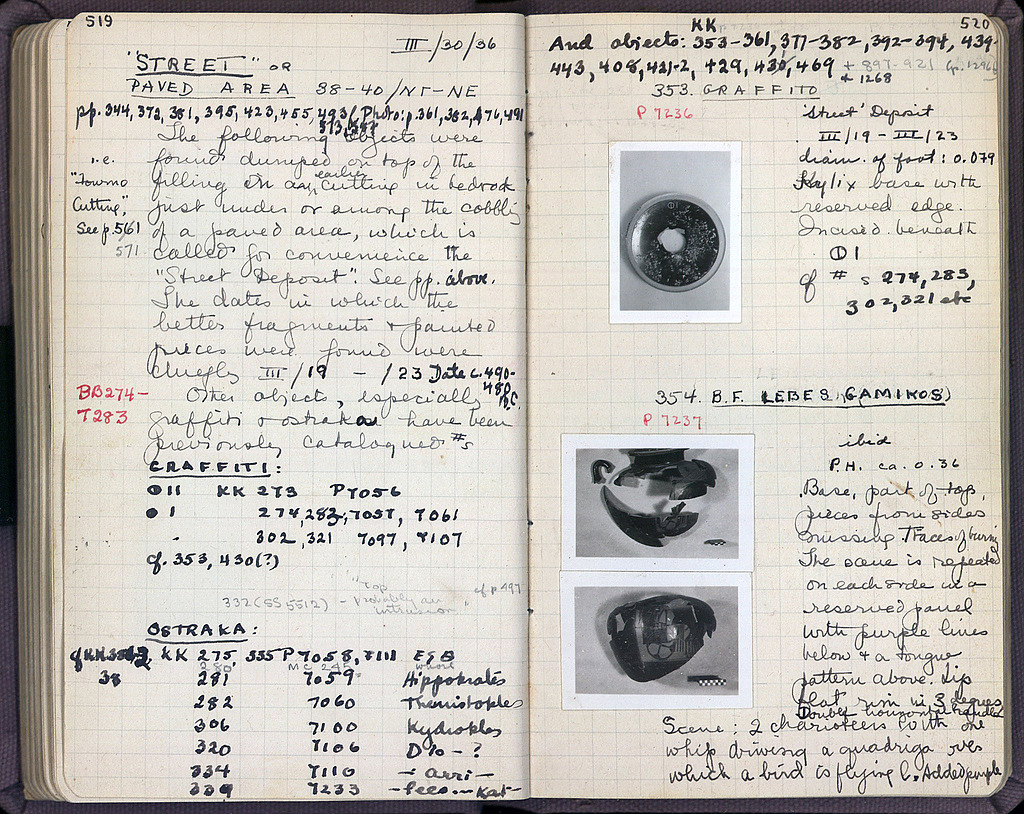 519
III/30/36
"STREET" OR
PAVED AREA 38-40/NT-NE
pp. 344, 372, 381, 395, 423, 455, 493 (Photo: p. 361, 382, 476, 491
The following objects were
found dumped on top of the
i.e.
filling in an earlier cutting in bedrock
Cutting,"
just under or among the cobbly
See p. 561
of a paved area, which is
571
called for convenience the
"Street Deposit". See pp. above.
The dates in which the
better fragments & painted
pieces were found were
chiefly III/19 - /23 Date c. 490-
480 B.C.
BB274-
T283
Other objects, especially
graffiti & ostraka have been
previously catalogued #s
GRAFFITI:
II KK 273 P7056
I 274, 283, 7057, 7061
302, 321 7097, 7107
cf. 353, 430(?)
332 (SS 5512) - "Top
Probably an
intrusion"
cf p 497
OSTRAKA:
KK 275, 335 P 7058, 7111
38 281 7059 Hippokrates
282 7060 Themistokles
306 7100 Kydrokles
320 7106 D%-?
334 7110 - arri -
339 7233
520
KK
And objects: 353-361, 377-382, 392-394, 439-
443, 408, 421-2, 429, 430, 469 + 897-921
+ 1268
353. GRAFFITO
P 7236
'Street' Deposit
III/19 - III/23
diam. of foot: 0.079
Kylix base with
reserved edge.
Incised beneath
I
cf #s 274, 283,
302, 321 etc
354. B.F. LEBES (GAMIKOS)
P 7237
ibid
P.H. ca. 0.36
Base, part of top,
pieces from sides
missing. Traces of burning
The scene is repeated
on each side in a
reserved panel
with purple lines
below & a tongue
pattern above. Lip
flat rim in 3 degrees
Double horizontal handles
Scene: 2 charioteers with one
whip driving a quadriga over
which a bird is flying l. Added purple